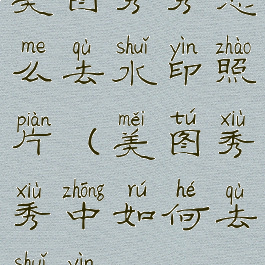 美图秀秀怎
me qù shuǐ yìn zhào
么去水印照
piàn měi tú xiù
片（美图秀
xiù zhōng rú hé qù
秀中如何去
shuǐ yìn